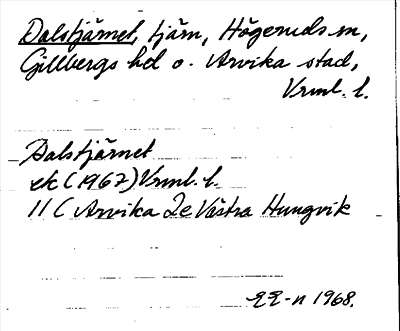 Dalstjärnet, tjärn, Högeruds sn,
Gillbergs hd o. Arvika stad,
Vrml. l.
Dalstjärnet
ek (1967) Vrml. l.
11C Arvika 2e Västra Hungvik
EE-n 1968.